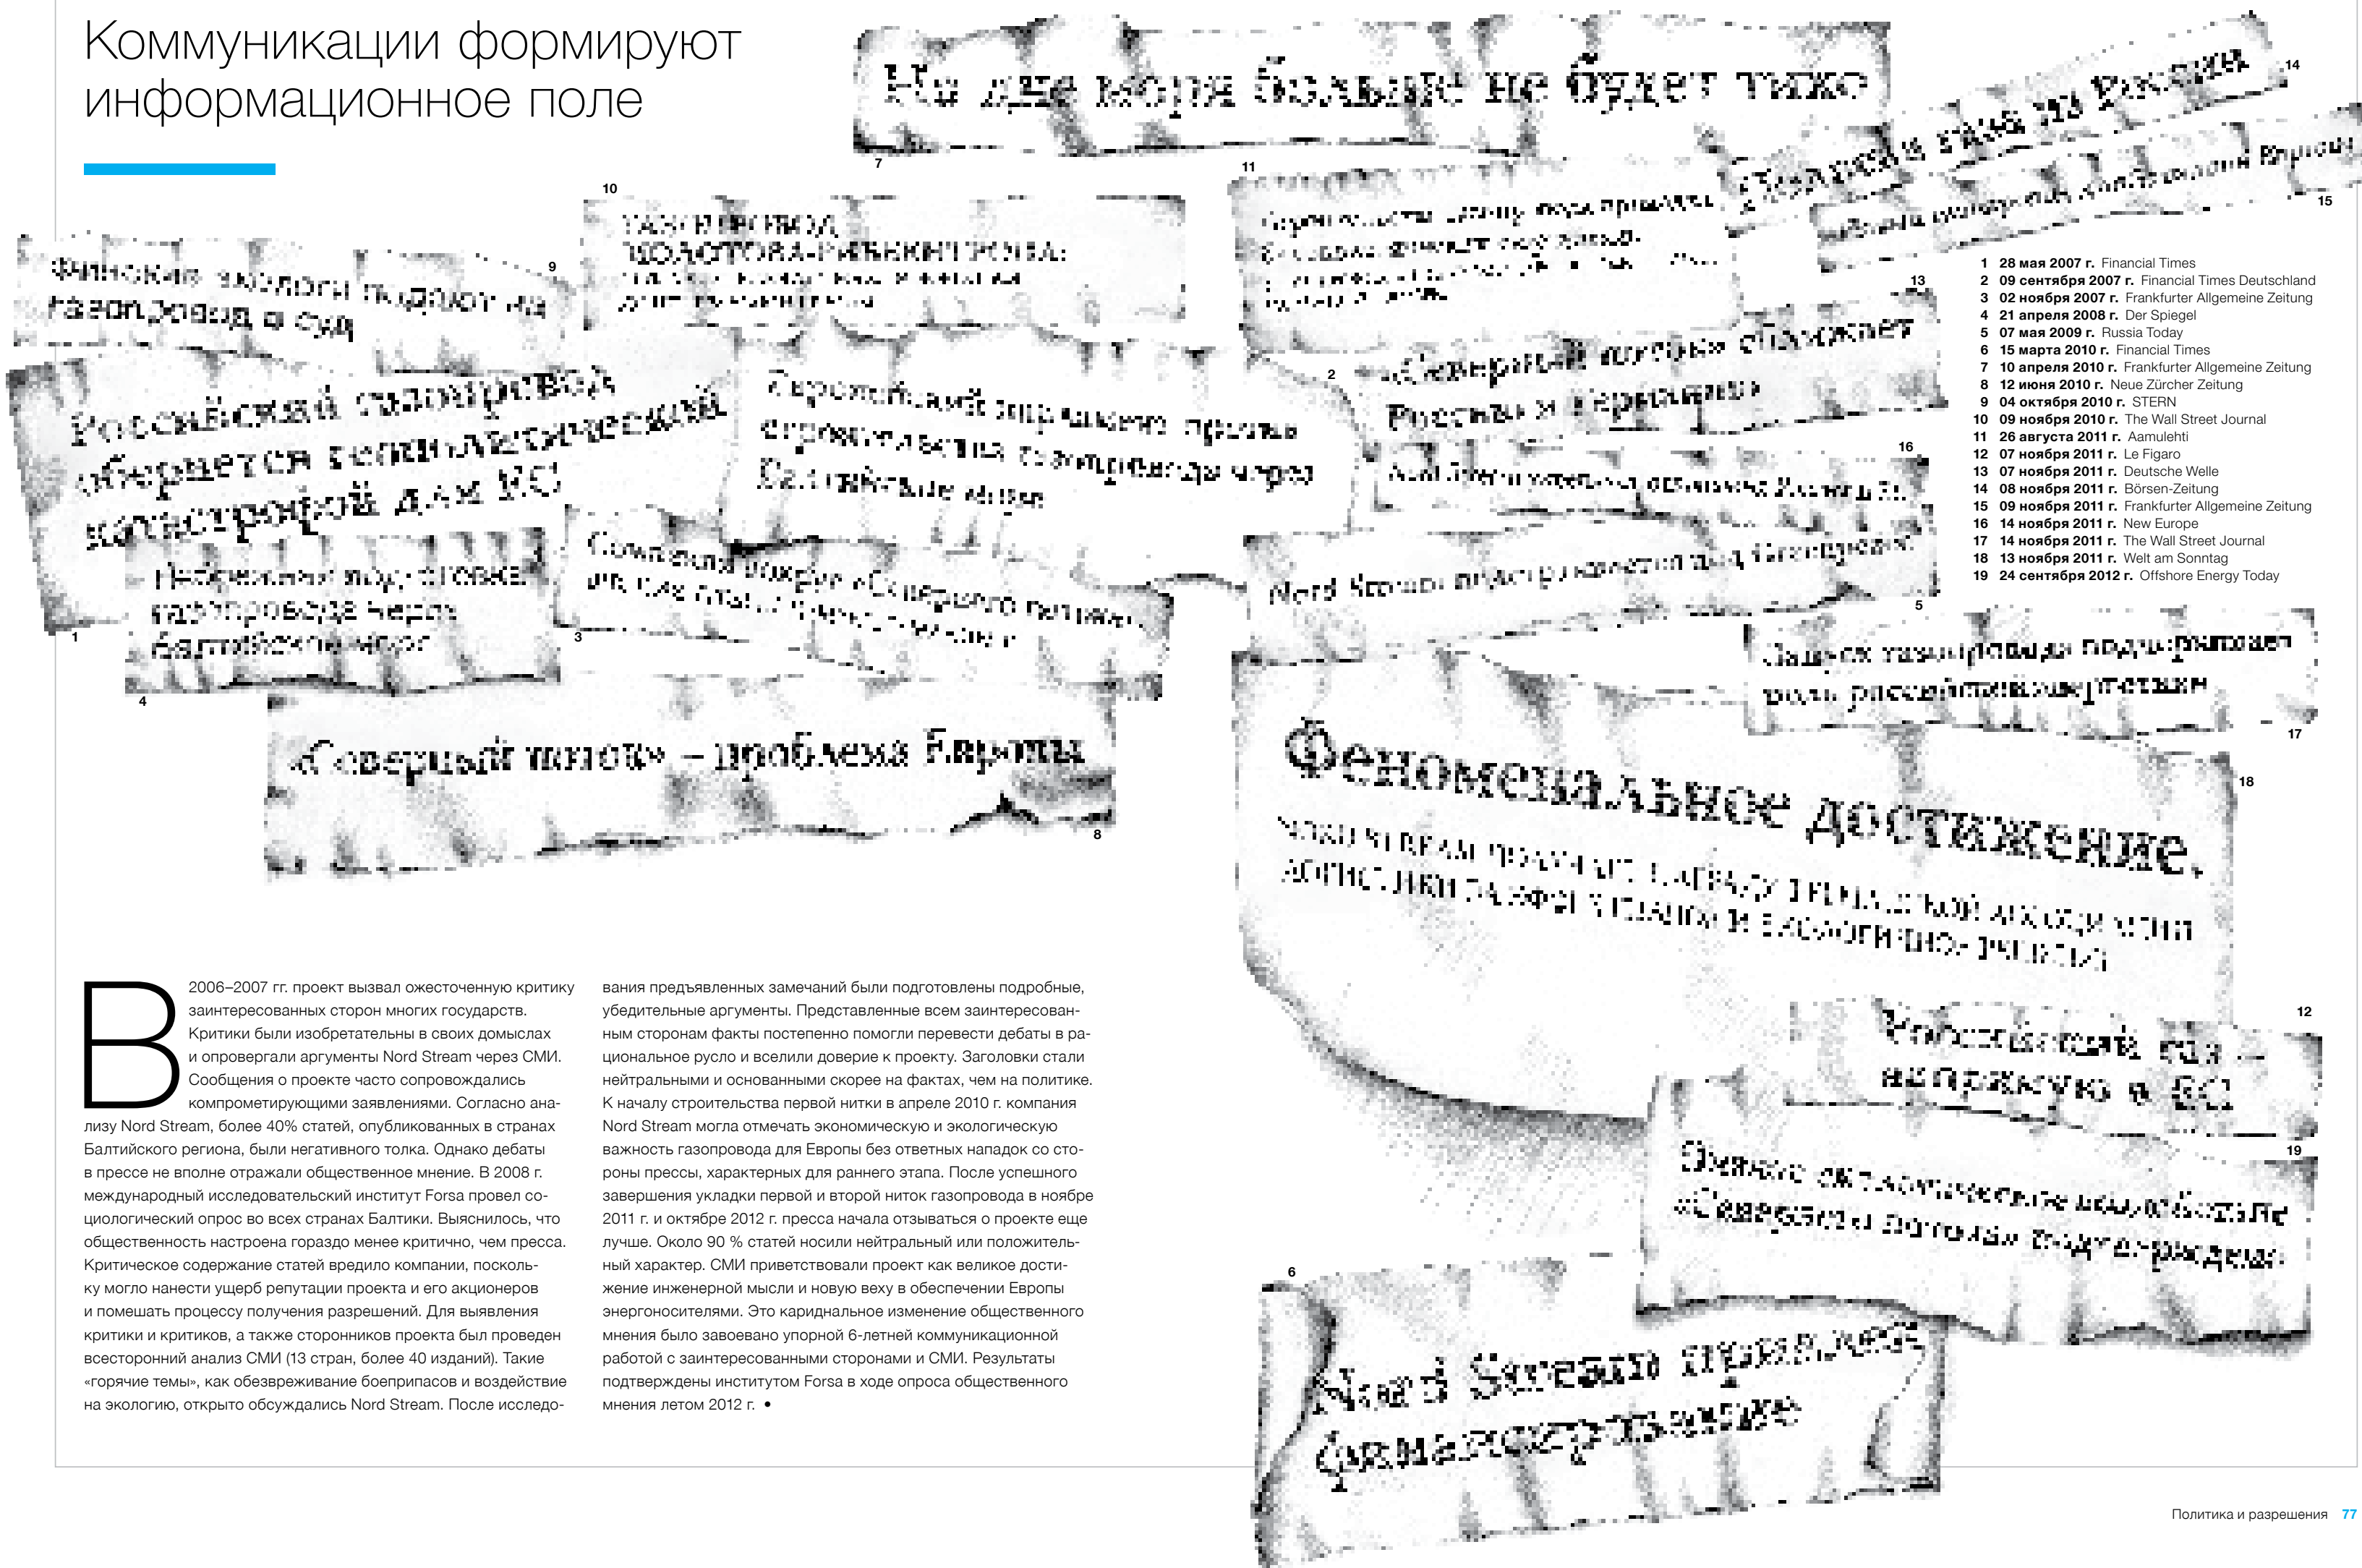 Коммуникации формируют
информационное поле
На дне моря больше не будет тихо
7
14
15
10
11
ГАЗОПРОВОД
МОЛОТОВА-РИББЕНТРОПА:
9
Финские экологи подают на
газопровод в суд
13
«Северный поток» сближает
Россию и Германию
2
Европейский парламент против
строительства газопровода через
Балтийское море
Российский газопровод
обернется геополитической
катастрофой для ЕС
1
16
3
газопровода через
Балтийское море
4
Nord Stream
5
«Северный поток» – проблема Европы
8
Запуск газопровода подчеркивает
роль российской энергетики
17
Феноменальное достижение.
18
12
Российский газ –
напрямую в ЕС
19
«Северного потока» подтверждена
6
Nord Stream привлек
финансирование
1 28 мая 2007 г. Financial Times
2 09 сентября 2007 г. Financial Times Deutschland
3 02 ноября 2007 г. Frankfurter Allgemeine Zeitung
4 21 апреля 2008 г. Der Spiegel
5 07 мая 2009 г. Russia Today
6 15 марта 2010 г. Financial Times
7 10 апреля 2010 г. Frankfurter Allgemeine Zeitung
8 12 июня 2010 г. Neue Zürcher Zeitung
9 04 октября 2010 г. STERN
10 09 ноября 2010 г. The Wall Street Journal
11 26 августа 2011 г. Aamulehti
12 07 ноября 2011 г. Le Figaro
13 07 ноября 2011 г. Deutsche Welle
14 08 ноября 2011 г. Börsen-Zeitung
15 09 ноября 2011 г. Frankfurter Allgemeine Zeitung
16 14 ноября 2011 г. New Europe
17 14 ноября 2011 г. The Wall Street Journal
18 13 ноября 2011 г. Welt am Sonntag
19 24 сентября 2012 г. Offshore Energy Today
В 2006–2007 гг. проект вызвал ожесточенную критику
заинтересованных сторон многих государств.
Критики были изобретательны в своих домыслах
и опровергали аргументы Nord Stream через СМИ.
Сообщения о проекте часто сопровождались
компрометирующими заявлениями. Согласно ана-
лизу Nord Stream, более 40% статей, опубликованных в странах
Балтийского региона, были негативного толка. Однако дебаты
в прессе не вполне отражали общественное мнение. В 2008 г.
международный исследовательский институт Forsa провел со-
циологический опрос во всех странах Балтики. Выяснилось, что
общественность настроена гораздо менее критично, чем пресса.
Критическое содержание статей вредило компании, посколь-
ку могло нанести ущерб репутации проекта и его акционеров
и помешать процессу получения разрешений. Для выявления
критики и критиков, а также сторонников проекта был проведен
всесторонний анализ СМИ (13 стран, более 40 изданий). Такие
«горячие темы», как обезвреживание боеприпасов и воздействие
на экологию, открыто обсуждались Nord Stream. После исследо-
вания предъявленных замечаний были подготовлены подробные,
убедительные аргументы. Представленные всем заинтересован-
ным сторонам факты постепенно помогли перевести дебаты в ра-
циональное русло и вселили доверие к проекту. Заголовки стали
нейтральными и основанными скорее на фактах, чем на политике.
К началу строительства первой нитки в апреле 2010 г. компания
Nord Stream могла отмечать экономическую и экологическую
важность газопровода для Европы без ответных нападок со сто-
роны прессы, характерных для раннего этапа. После успешного
завершения укладки первой и второй ниток газопровода в ноябре
2011 г. и октябре 2012 г. пресса начала отзываться о проекте еще
лучше. Около 90 % статей носили нейтральный или положитель-
ный характер. СМИ приветствовали проект как великое дости-
жение инженерной мысли и новую веху в обеспечении Европы
энергоносителями. Это кариднальное изменение общественного
мнения было завоевано упорной 6-летней коммуникационной
работой с заинтересованными сторонами и СМИ. Результаты
подтверждены институтом Forsa в ходе опроса общественного
мнения летом 2012 г. •
Политика и разрешения 77